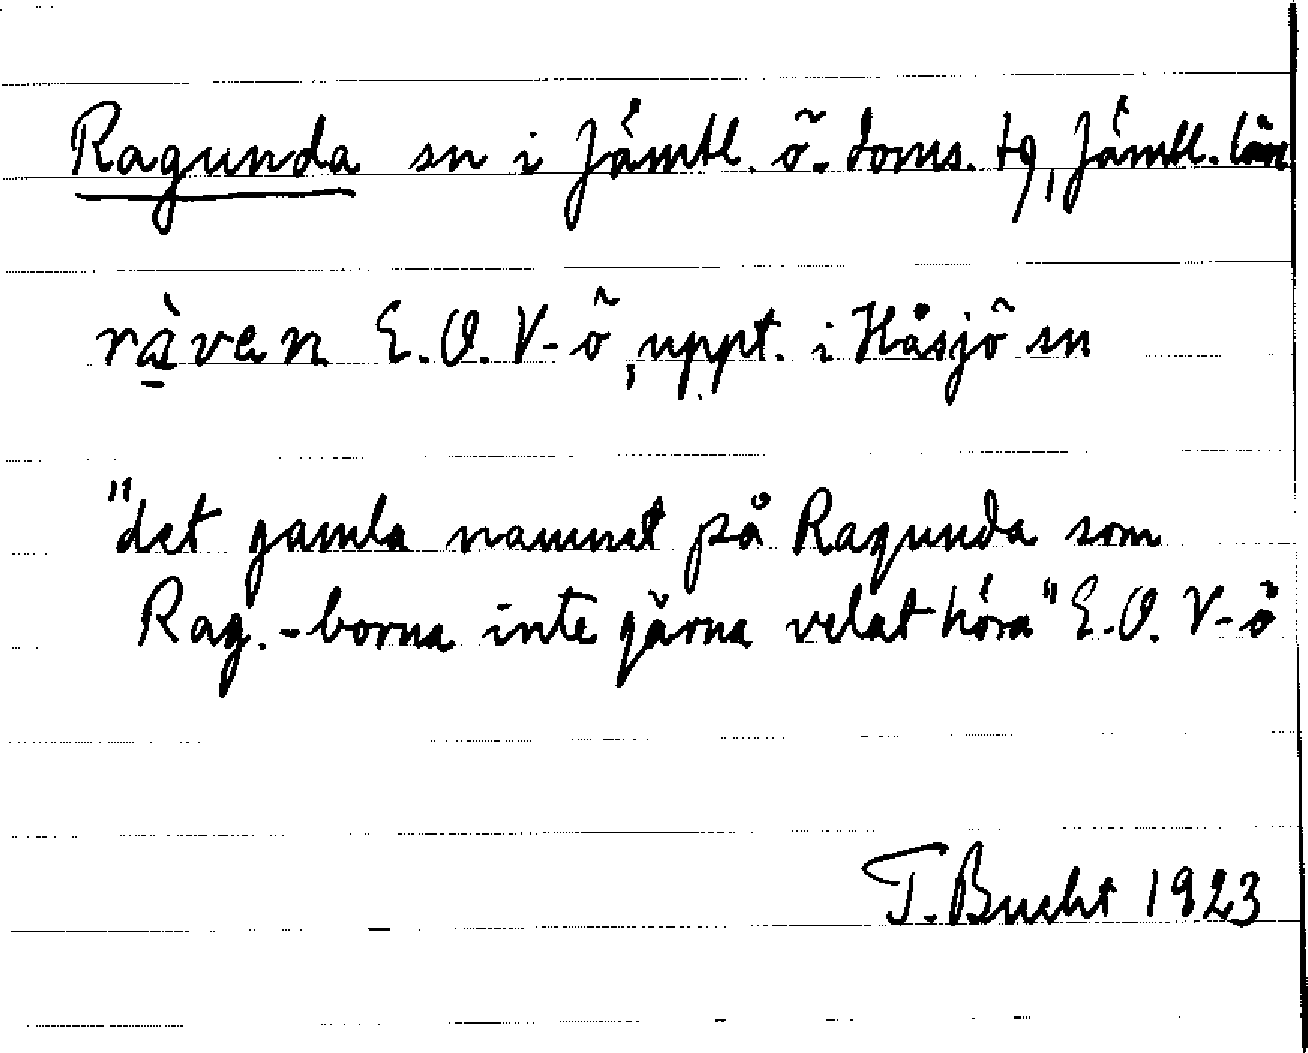 Ragunda sn i Jämtl. ö. doms. tg, Jämtl. län
rà̱ven E. O. V-ö, uppt. i Håsjö sn
"det gamla namnet på Ragunda som
Rag.-borna inte gärna velat höra" E. O. V-ö
T. Bucht 1923